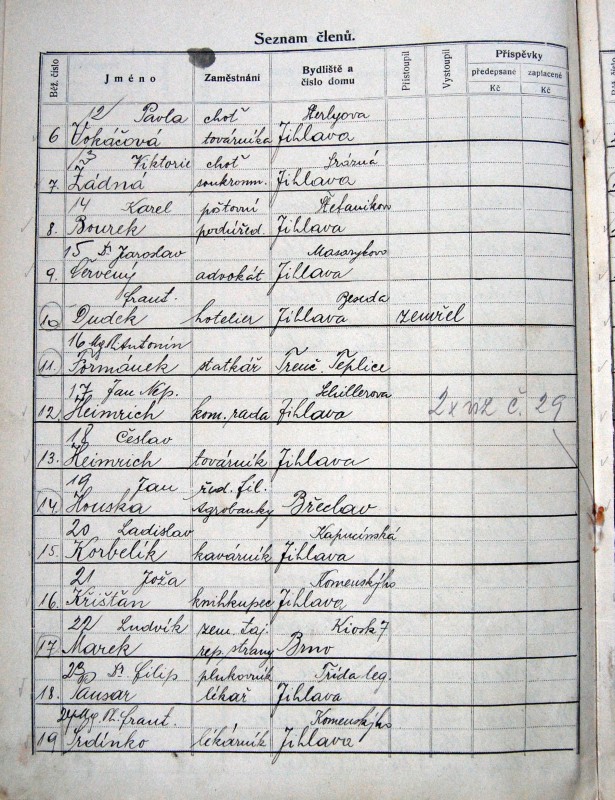 Seznam členů.
Běž. číslo
Jméno
Zaměstnání
Bydliště a
číslo domu
Přistoupil
Vystoupil
Příspěvky
předepsané
zaplacené
Kč
Kč
12 Pavla choť
6 Vokáčová továrníka Jihlava
13 Viktorie choť Srázná
7. Žádná soukromn. Jihlava
14 Karel poštovní Štefanikov
8. Bourek podúřed. Jihlava
15 Dr. Jaroslav Masarykovo
9. Červený advokát Jihlava
Frant. Beseda
10 Dudek hotelier Jihlava zemřel
16 Mg. Ph Antonín
11. Formánek statkář Trenč. Teplice
17 Jan Nep. Schillerova
12. Heimrich kom. rada Jihlava 2x viz č. 29
18 Česlav
13. Heimrich továrník Jihlava
19 Jan řed. fil.
14. Houska Agrobanky Břeclav
20 Ladislav Kapucínská
15. Korbelík kavárník Jihlava
21 Joža Komenského
16. Křišťan knihkupec Jihlava
22 Ludvík zem. taj. Kiosk 7
17 Marek rep. strany Brno
23 Dr. Filip plukovník Třída leg.
18. Pausar lékař Jihlava
24 Mg. Ph. Frant. Komenského
19 Srdínko lékárník Jihlava